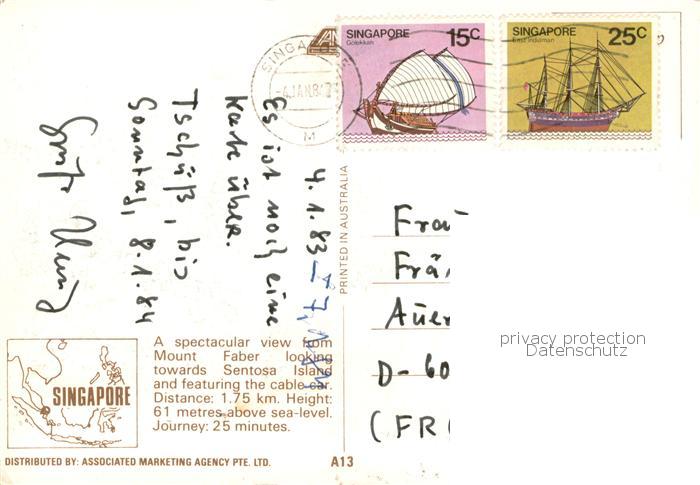 SINGAPORE
Golekkan
15C
SINGAPORE
East Indiaman
25C
4 JAN.84
M
4.1.83
Es ist noch eine
Karte über.
Tschüß, bis
Sonntag, 8.1.84
PRINTED IN AUSTRALIA
Frau
Frä
Auer
D-60
(FR
privacy protection
Datenschutz
SINGAPORE
A spectacular view from
Mount Faber looking
towards Sentosa Island
and featuring the cable car.
Distance: 1.75 km. Height:
61 metres above sea-level.
Journey: 25 minutes.
DISTRIBUTED BY: ASSOCIATED MARKETING AGENCY PTE. LTD.
A13